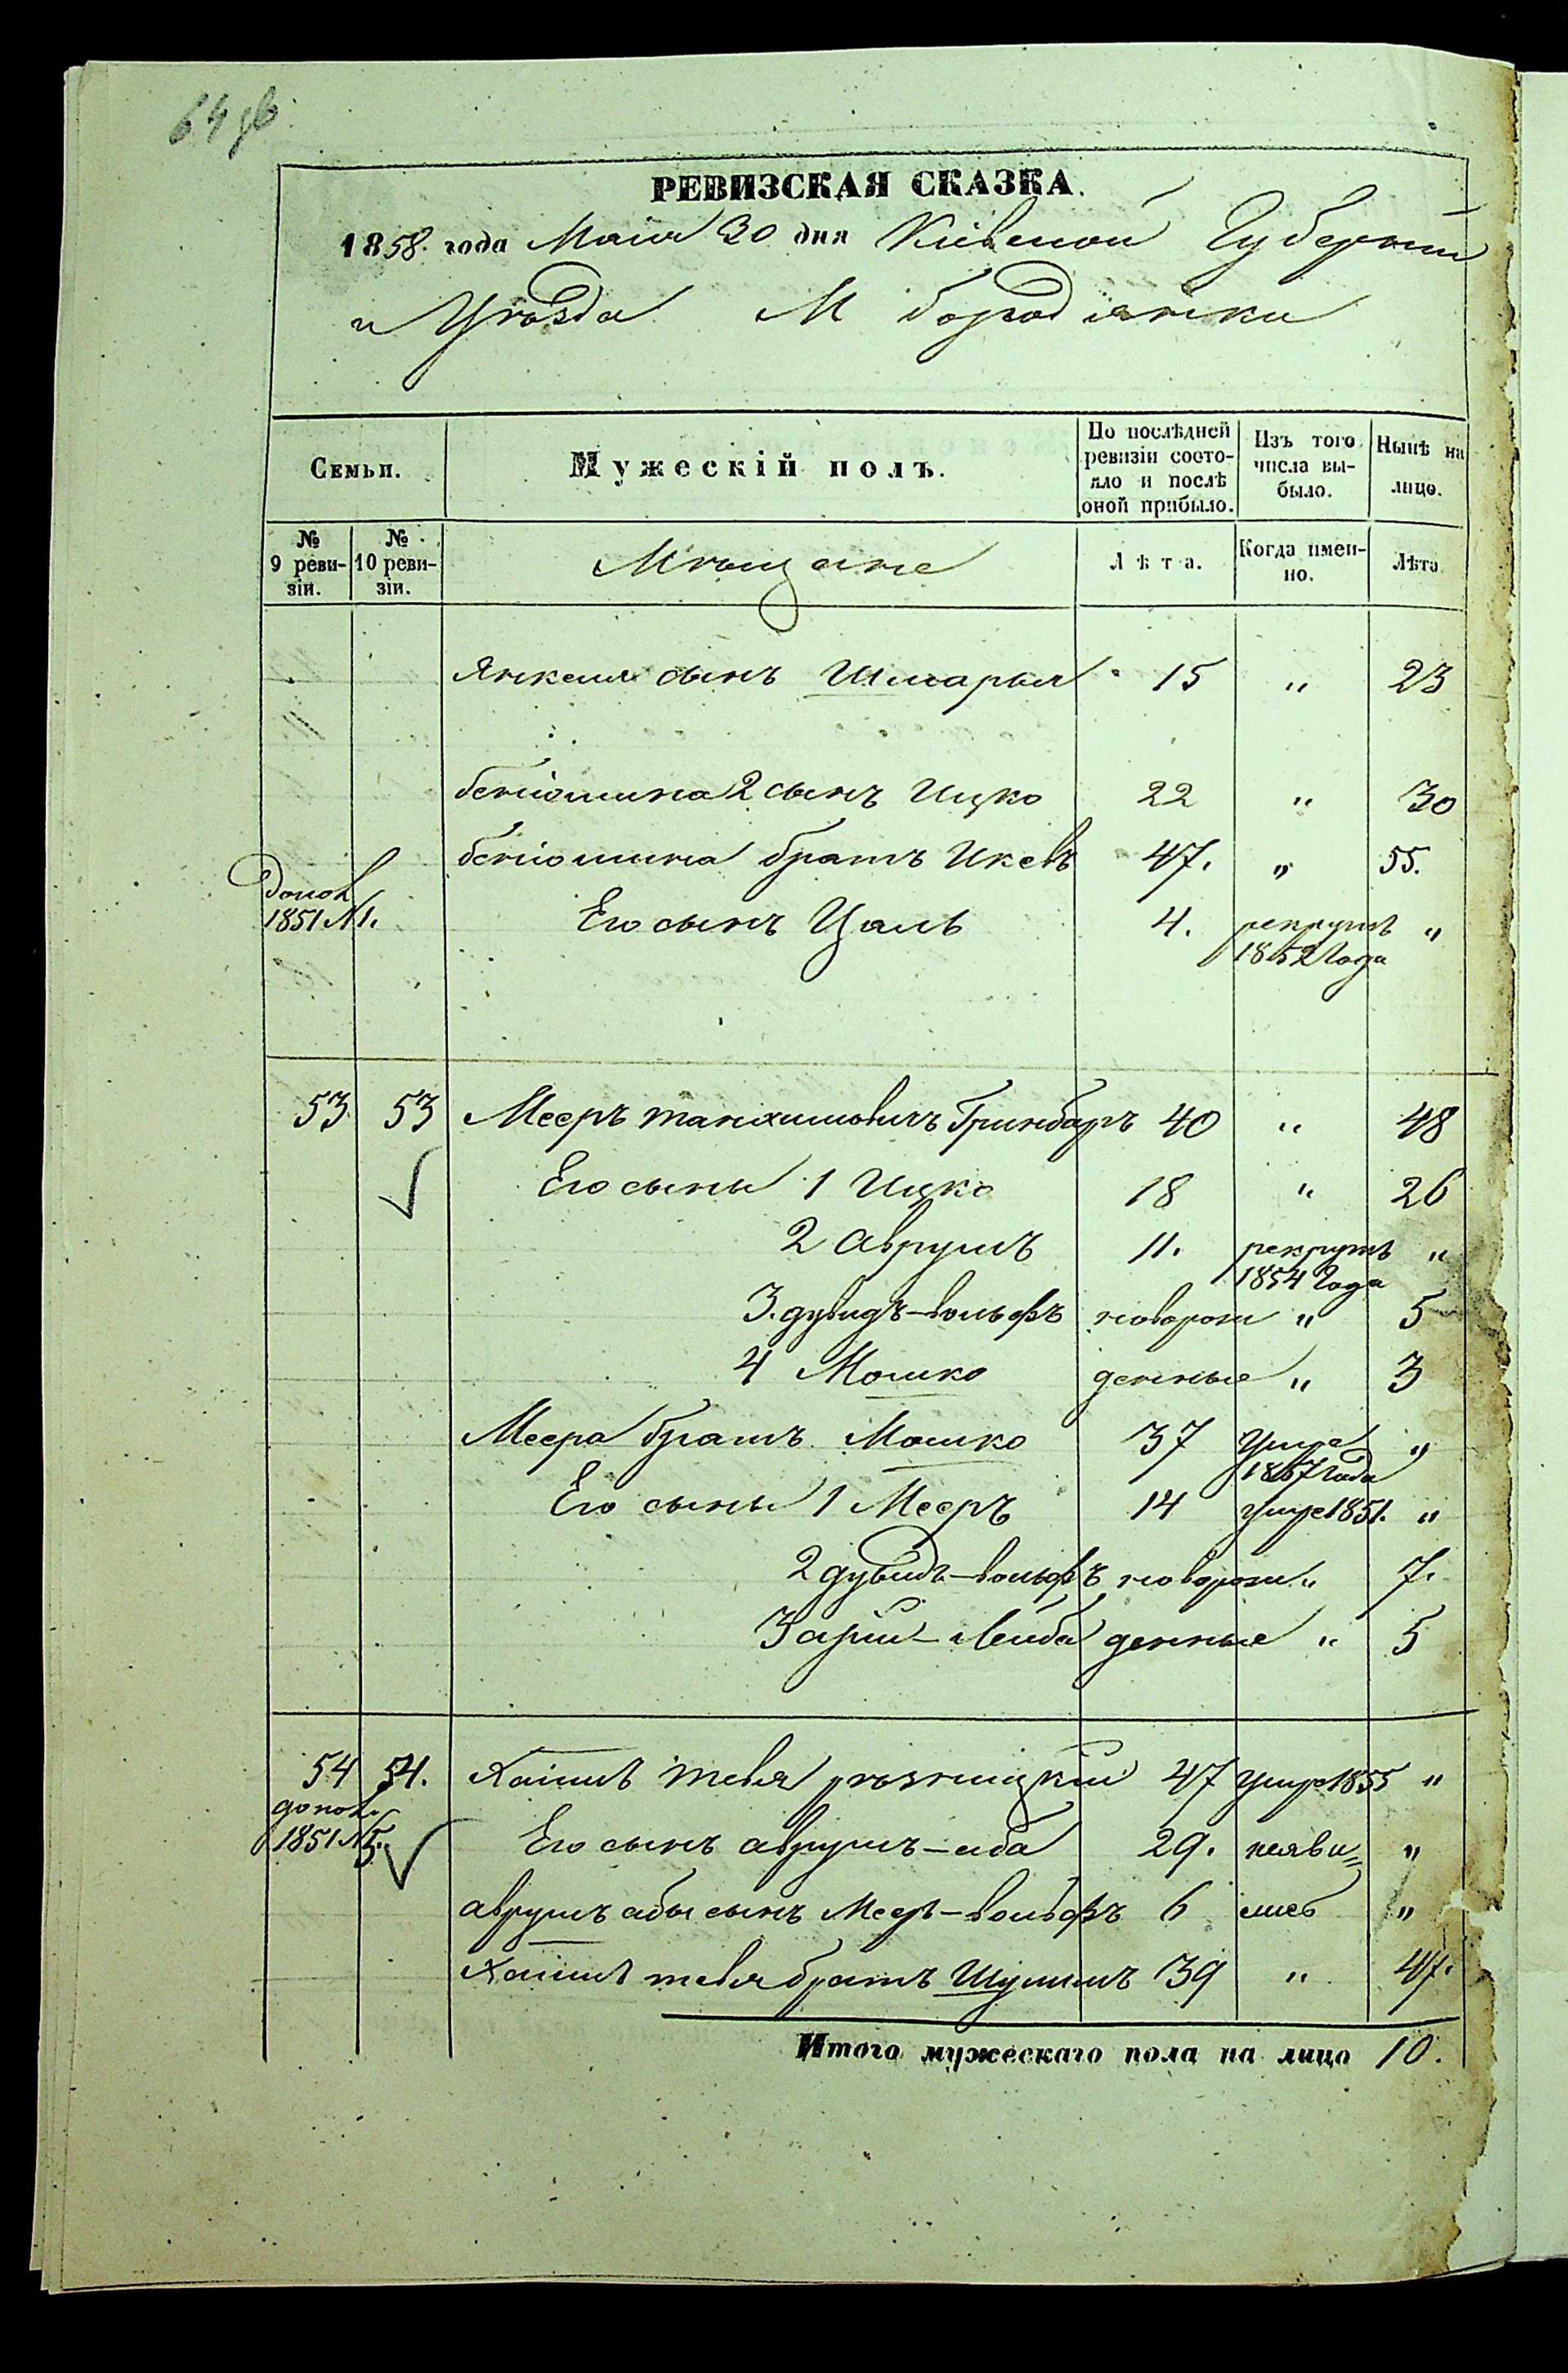 64 об
РЕВИЗСКАЯ СКАЗКА.
1858. года Маія 30 дня Кіевской Губерніи
и Уѣзда М Бородянки
Семьи. Мужескій полъ. По послѣдней ревизіи состояло и послѣ оной прибыло. Изъ того числа выбыло. Нынѣ на лицо.
№ 9 ревизіи. № 10 ревизіи. Мѣщане Лѣта. Когда именно. Лѣта
Янкеля сынъ Шмарыя 15 " 23
Беніомина 2 сынъ Ицко 22 " 30
Беніомина братъ Икевъ 47. " 55.
допол 1851 №1. Его сынъ Цаль 4. рекрутъ 1852 года "
53 53 Мееръ Танхимовичъ Гринбаръ 40 " 48
Его сыны 1 Ицко 18 " 26
2 Аврумъ 11. рекрутъ 1854 Года "
3. Дувидъ-Вольфъ новорож " 5
4 Мошко денные " 3
Меера братъ Мошко 37 Умре 1857 года "
Его сыны 1 Мееръ 14 умре 1851. "
2 Дувидъ-Вольфъ новорож " 7.
3 Арій-Лейба денные " 5
54 54. Хаимъ Тевья Рѣзницкій 47 умре 1855 "
допол. 1851 №5. Его сынъ Аврумъ-Аба 29. неяви= "
Аврумъ Абы сынъ Меер-Вольфъ 6 лись "
Хаимъ Тевья братъ Шулимъ 39 " 47.
Итого мужескаго пола на лицо 10.